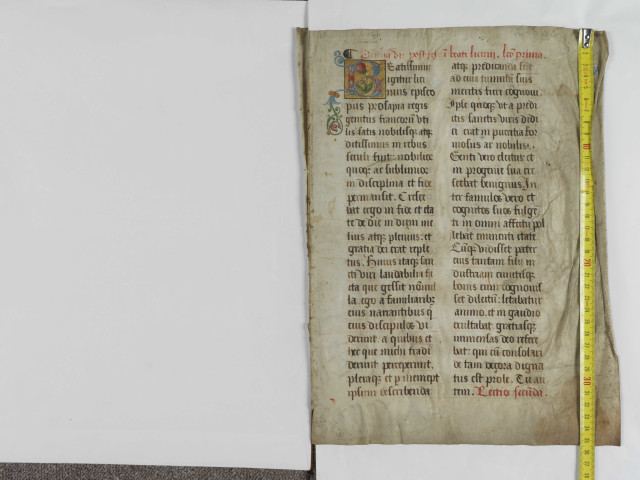 beati licinii. lc̄o prima.
Beatissimus
igitur lici
nius episco
pus prosapia regis
genitus francorum vti
lis satis nobilisqꝫ atqꝫ
ditissimus in rebus
seculi fuit: nobilior
quoqꝫ ac sublimior
in disciplina et fide
permansit. Cresce
bat ergo in fide et eta
te de die in diem me
lius atqꝫ plenius: et
gratia dei erat reple
tus. Huius itaqꝫ san
cti viri laudabilia fa
cta que gessit nōnul
la. ego a familiaribꝫ
eius narrantibus q
eius discipulos vi
derunt. a quibus et
hec que michi tradi
derunt perceperunt.
pleraqꝫ et
ipsum describenda
atqꝫ predicanda
ad eius tumulum suis
meritis fieri cognoui.
Ipse quoqꝫ vt a predi
ctis sanctis viris didi
ci erat in pueritia for
mosus ac nobilis.
Genti vero electus et
in progenie sua cre
scebat benignus. In
ter famulos vero et
cognitos suos fulge
bat in omni affectu pol
lebat eminenti etate
Cūqꝫ vidisset pater
eius tantam filii in
dustriam cunctisqꝫ
bonis eum cognouis
set dilectū: letabatur
animo. et in gaudio
exultabat. gratiasqꝫ
immensas deo refere
bat: qui eū consolari
de tam decora digna
tus est prole. Tu au
tem. Lectio secūda.
10
20
30